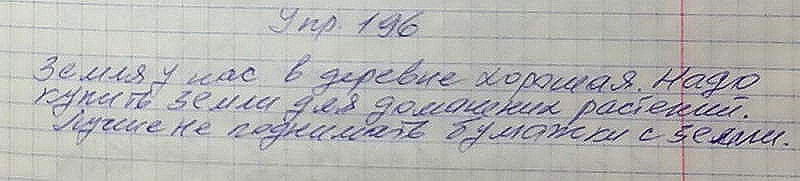 Упр. 196
Земля у нас в деревне хорошая. Надо
купить земли для домашних растений.
Лучше не поднимать бумажки с земли.